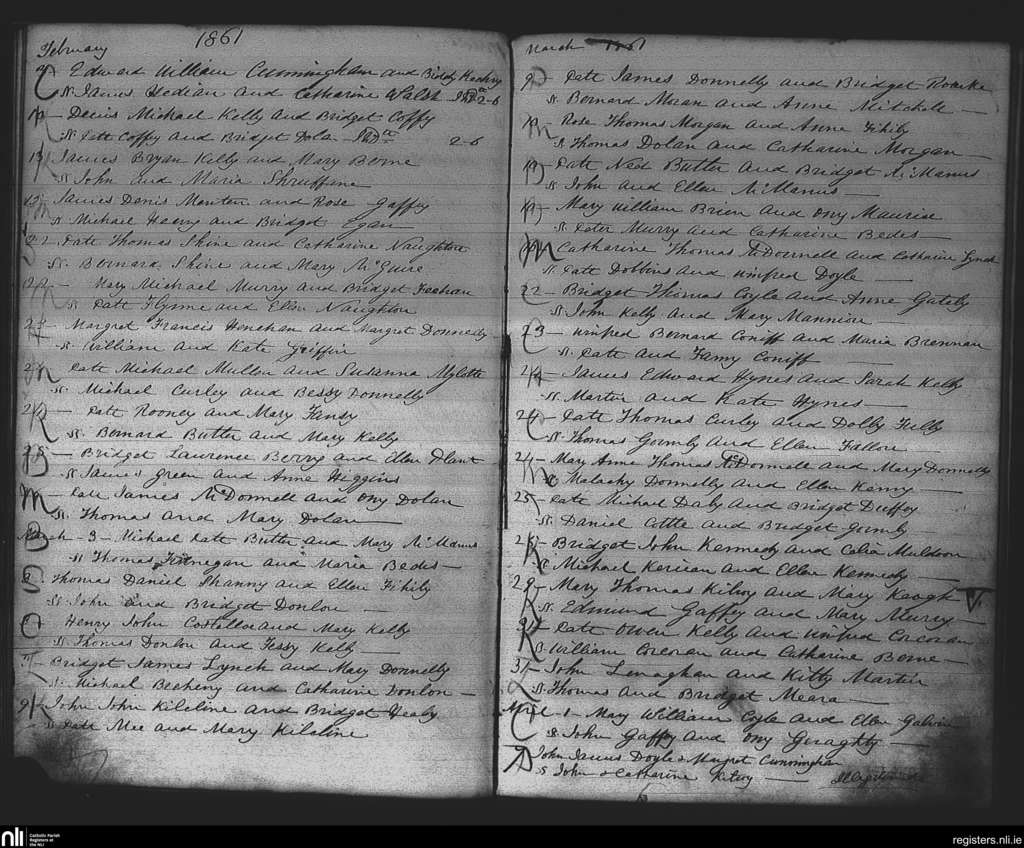 1861
February
Edward William Cunningham and Biddy
N. James Hedian and Catharine Walsh 2-6
Denis Michael Kelly and Bridget Coffy
N. Patt Coffy and Bridget Dola 2-6
13 James Bryan Kelly and Mary Berne
N. John and Maria
James Denis Menton and Rose Gaffy
N. Michael Heavy and Bridget Egan
22 Patt Thomas Shine and Catharine Naughton
N. Bernard Shine and Mary McGuire
Mary Michael Murry and Bridget Feehan
N. Patt Flynne and Ellen Naughton
Margret Francis Henehan and Margret Donnelly
N. William and Kate Griffin
Patt Michael Mullen and Susanna
N. Michael Curley and Bessy Donnelly
Patt Rooney and Mary
N. Bernard Butter and Mary Kelly
Bridget Laurence Berry and Ellen Plant
N. James Green and Anne Higgins
Patt James McDonnell and Ony Dolan
N. Thomas and Mary Dolan
March - 3 - Michael Patt Butter and Mary McManus
N. Thomas Finnegan and Maria Bedes
Thomas Daniel Shanny and Ellen Fihily
N. John and Bridget Donlon
Henry John Costelloe and Mary Kelly
N. Thomas Donlon and Tessy Kelly
Bridget James Lynch and Mary Donnelly
N. Michael Becheny and Catharine Donlon
9 John John Kilcline and Bridget Healy
N. Patt Mee and Mary Kilcline
March 1861
9 - Patt James Donnelly and Bridget Roarke
N. Bernard Moran and Anne Mitchell
Rose Thomas Morgan and Anne Fihily
N. Thomas Dolan and Catharine Morgan
Patt Ned Butter and Bridget McManus
N. John and Ellen McManus
Mary William Brien and Ony Maurice
N. Peter Murry and Catharine Bedes
Catharine Thomas McDonnell and Catharine Lynch
N. Patt Dobbins and Winifred Doyle
22 - Bridget Thomas Coyle and Anne Gately
N. John Kelly and Mary Mannion
23 - Winifred Bernard Coniff and Maria Brennan
N. Patt and Fanny Coniff
24 - James Edward Hynes and Sarah Kelly
N. Martin and Kate Hynes
24 - Patt Thomas Curley and Dolly
N. Thomas Gormly and Ellen Fallon
24 - Mary Anne Thomas McDonnell and Mary Donnelly
N. Malachy Donnelly and Ellen Kenny
25 - Patt Michael Daly and Bridget Duffey
N. Daniel Cottle and Bridget Gormly
Bridget John Kennedy and Celia Muldoon
N. Michael Kerican and Ellen Kennedy
29 - Mary Thomas Kilroy and Mary Keogh
N. Edmund Gaffey and Mary Murry
Patt Owen Kelly and Winifred Corcoran
William Corcoran and Catharine Berne
31 - John Lenaghan and Kitty Martin
N. Thomas and Bridget Meara
April - 1 - Mary William Coyle and Ellen Galvin
N. John Gaffey and Ony Geraghty
John James Doyle & Margret Cunningham
N. John & Catharine Kilroy
nli
Catholic Parish
Registers at
the NLI
registers.nli.ie